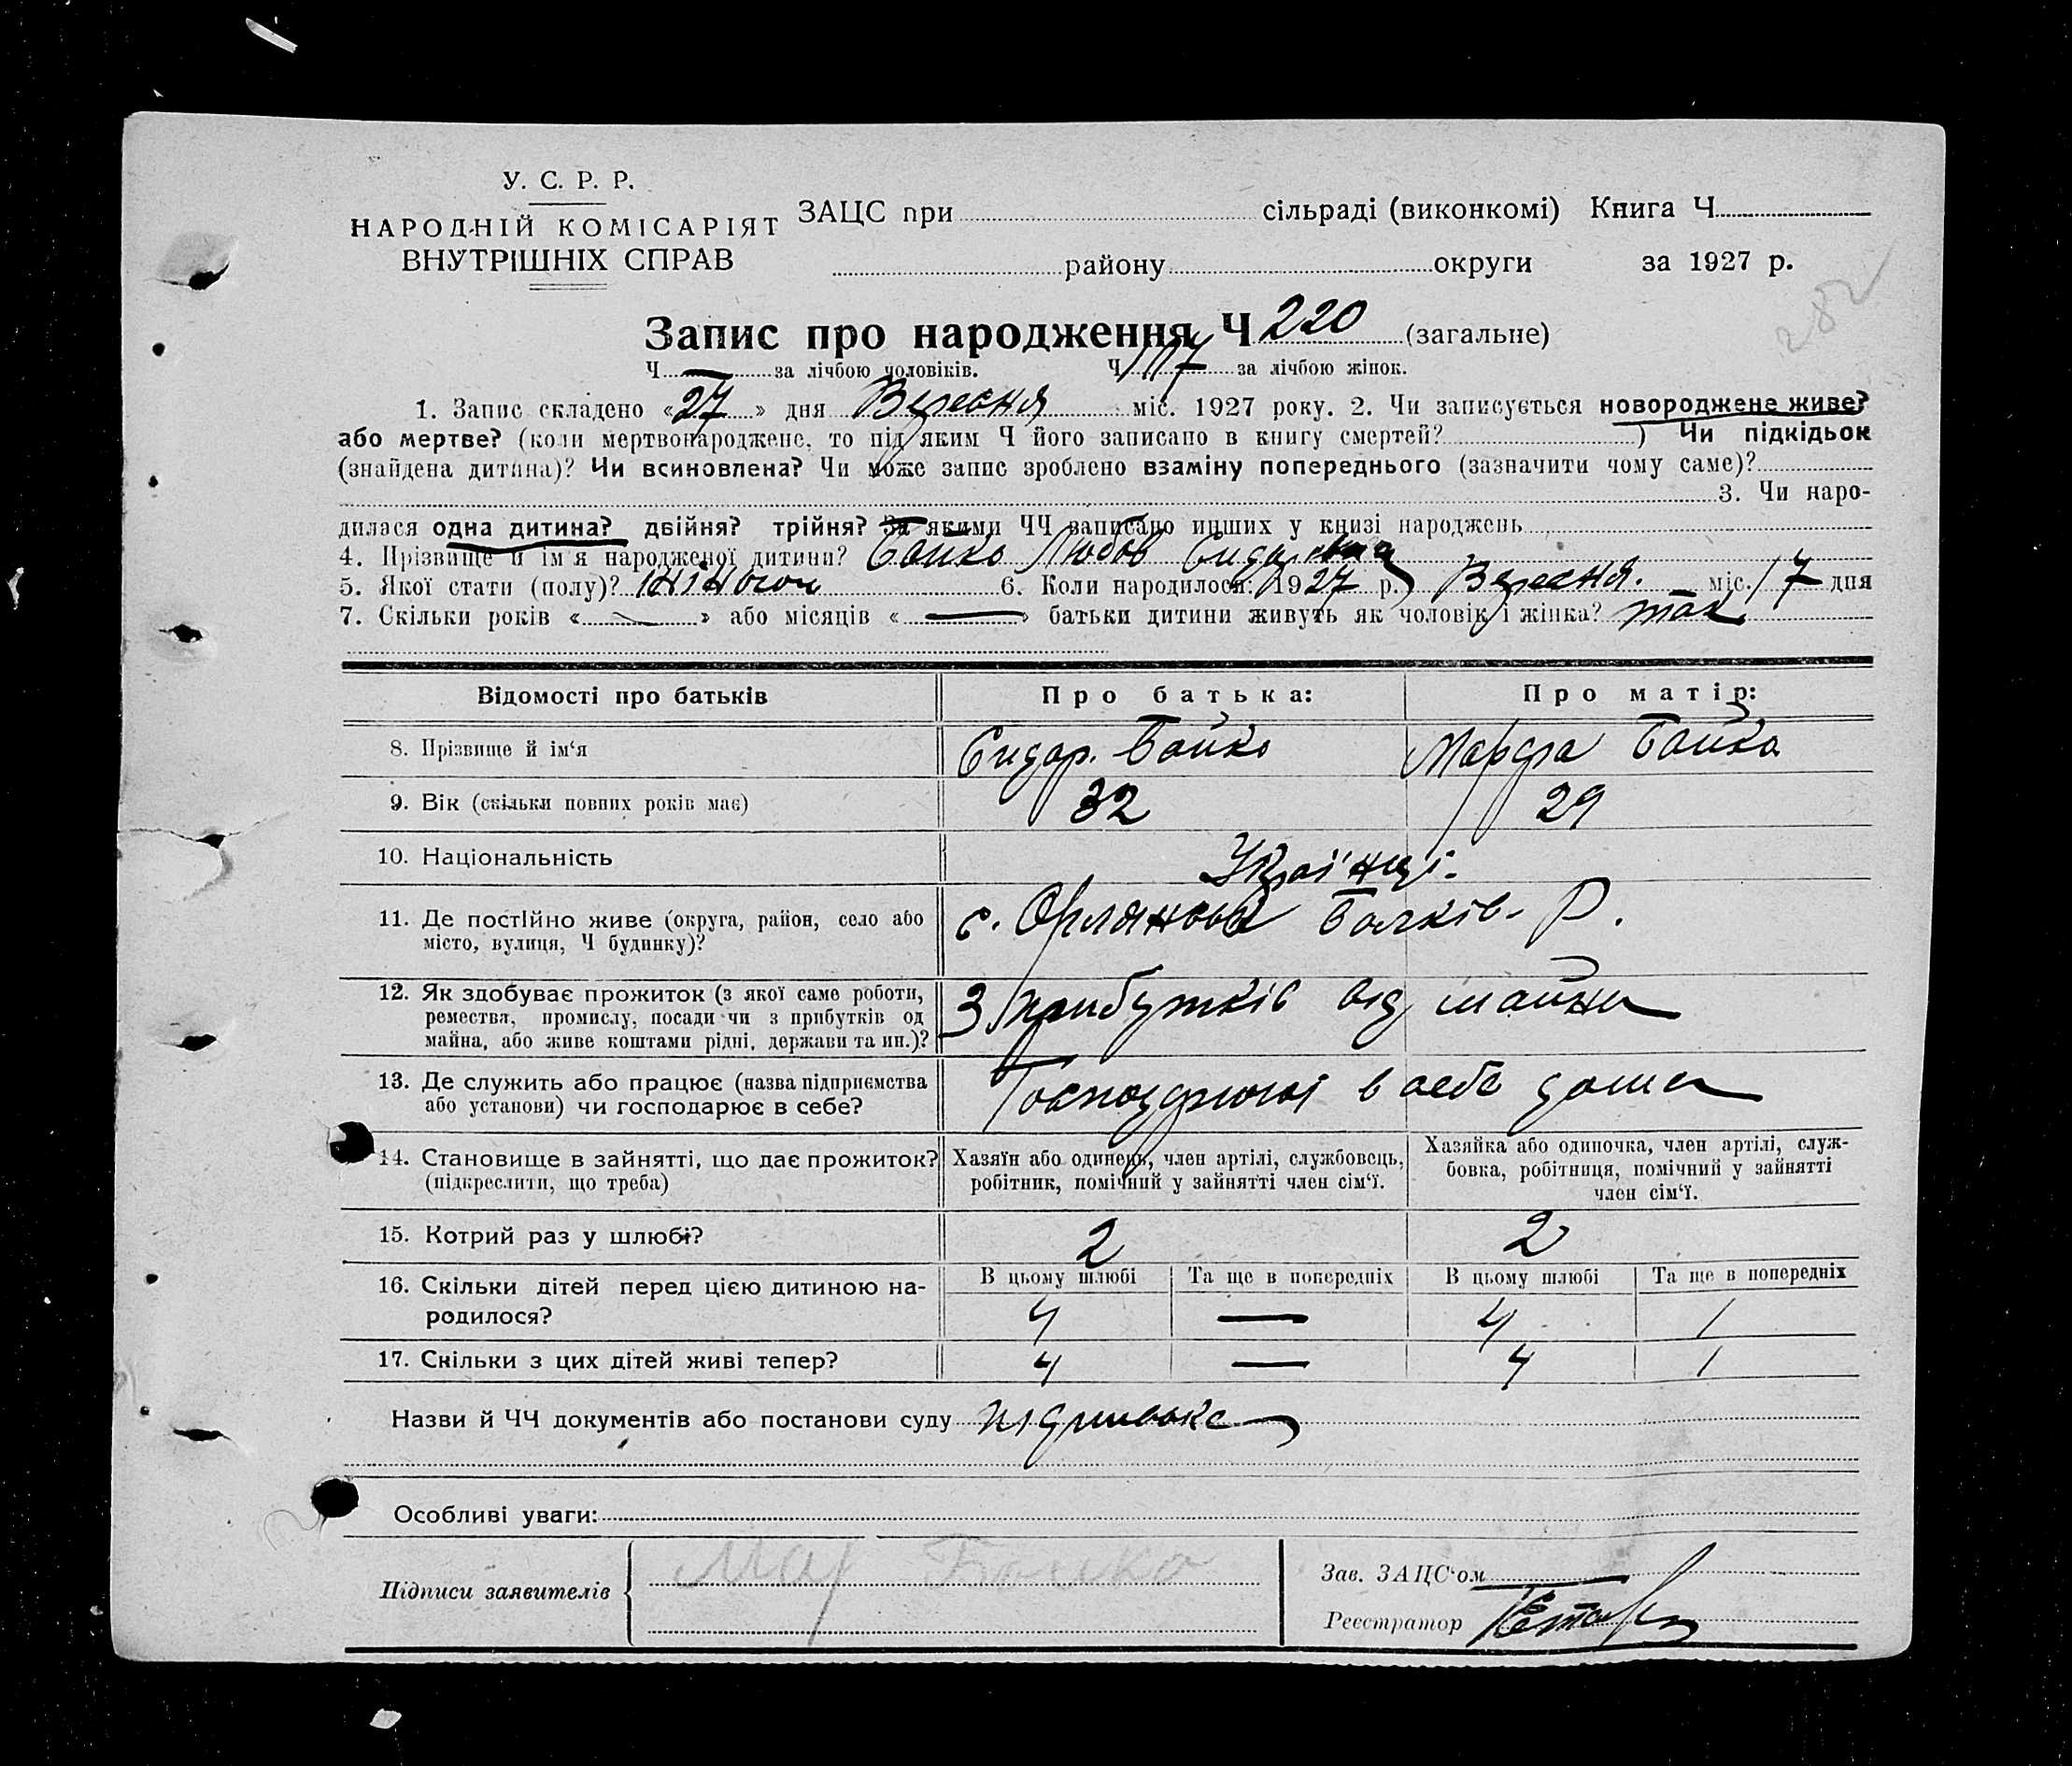 У. С. Р. Р.
НАРОДНІЙ КОМІСАРІЯТ
ВНУТРІШНІХ СПРАВ
ЗАЦС при сільраді (виконкомі) Книга Ч
району округи за 1927 р.
282
Запис про народження Ч 220 (загальне)
Ч — за лічбою чоловіків. Ч 117 за лічбою жінок.
1. Запис складено «27» дня Вересня міс. 1927 року. 2. Чи записується новороджене живе?
або мертве? (коли мертвонароджене, то під яким Ч його записано в книгу смертей? ) Чи підкідьок
(знайдена дитина)? Чи всиновлена? Чи може запис зроблено взаміну попереднього (зазначити чому саме)?
3. Чи наро-
дилася одна дитина? двійня? трійня? За якими ЧЧ записано инших у книзі народжень
4. Прізвище й ім'я народженої дитини? Бойко Любов Сидоровна
5. Якої стати (полу)? жіночої 6. Коли народилося: 1927 р. Вересня міс. 17 дня
7. Скільки років «—» або місяців «—» батьки дитини живуть як чоловік і жінка? так
Відомості про батьків Про батька: Про матір:
8. Прізвище й ім'я Сидор. Бойко Марфа Бойко
9. Вік (скільки повних років має) 32 29
10. Національність Українці.
11. Де постійно живе (округа, район, село або
місто, вулиця, Ч будинку)? с. Орлянськ Балків. Р.
12. Як здобуває прожиток (з якої саме роботи,
ремества, промислу, посади чи з прибутків од
майна, або живе коштами рідні, держави та ин.)? З прибутків від майна
13. Де служить або працює (назва підприємства
або установи) чи господарює в себе? в себе дома
14. Становище в зайнятті, що дає прожиток?
(підкреслити, що треба)
Хазяїн або одинець, член артілі, службовець,
робітник, помічний у зайнятті член сім'ї.
Хазяйка або одиночка, член артілі, служ-
бовка, робітниця, помічний у зайнятті
член сім'ї.
15. Котрий раз у шлюбі? 2 2
В цьому шлюбі Та ще в попередніх В цьому шлюбі Та ще в попередніх
16. Скільки дітей перед цією дитиною на-
родилося? 4 — 4 1
17. Скільки з цих дітей живі тепер? 4 — 4 1
Назви й ЧЧ документів або постанови суду
Особливі уваги:
Підписи заявителів Мар Бойко
Зав. ЗАЦС'ом
Реєстратор